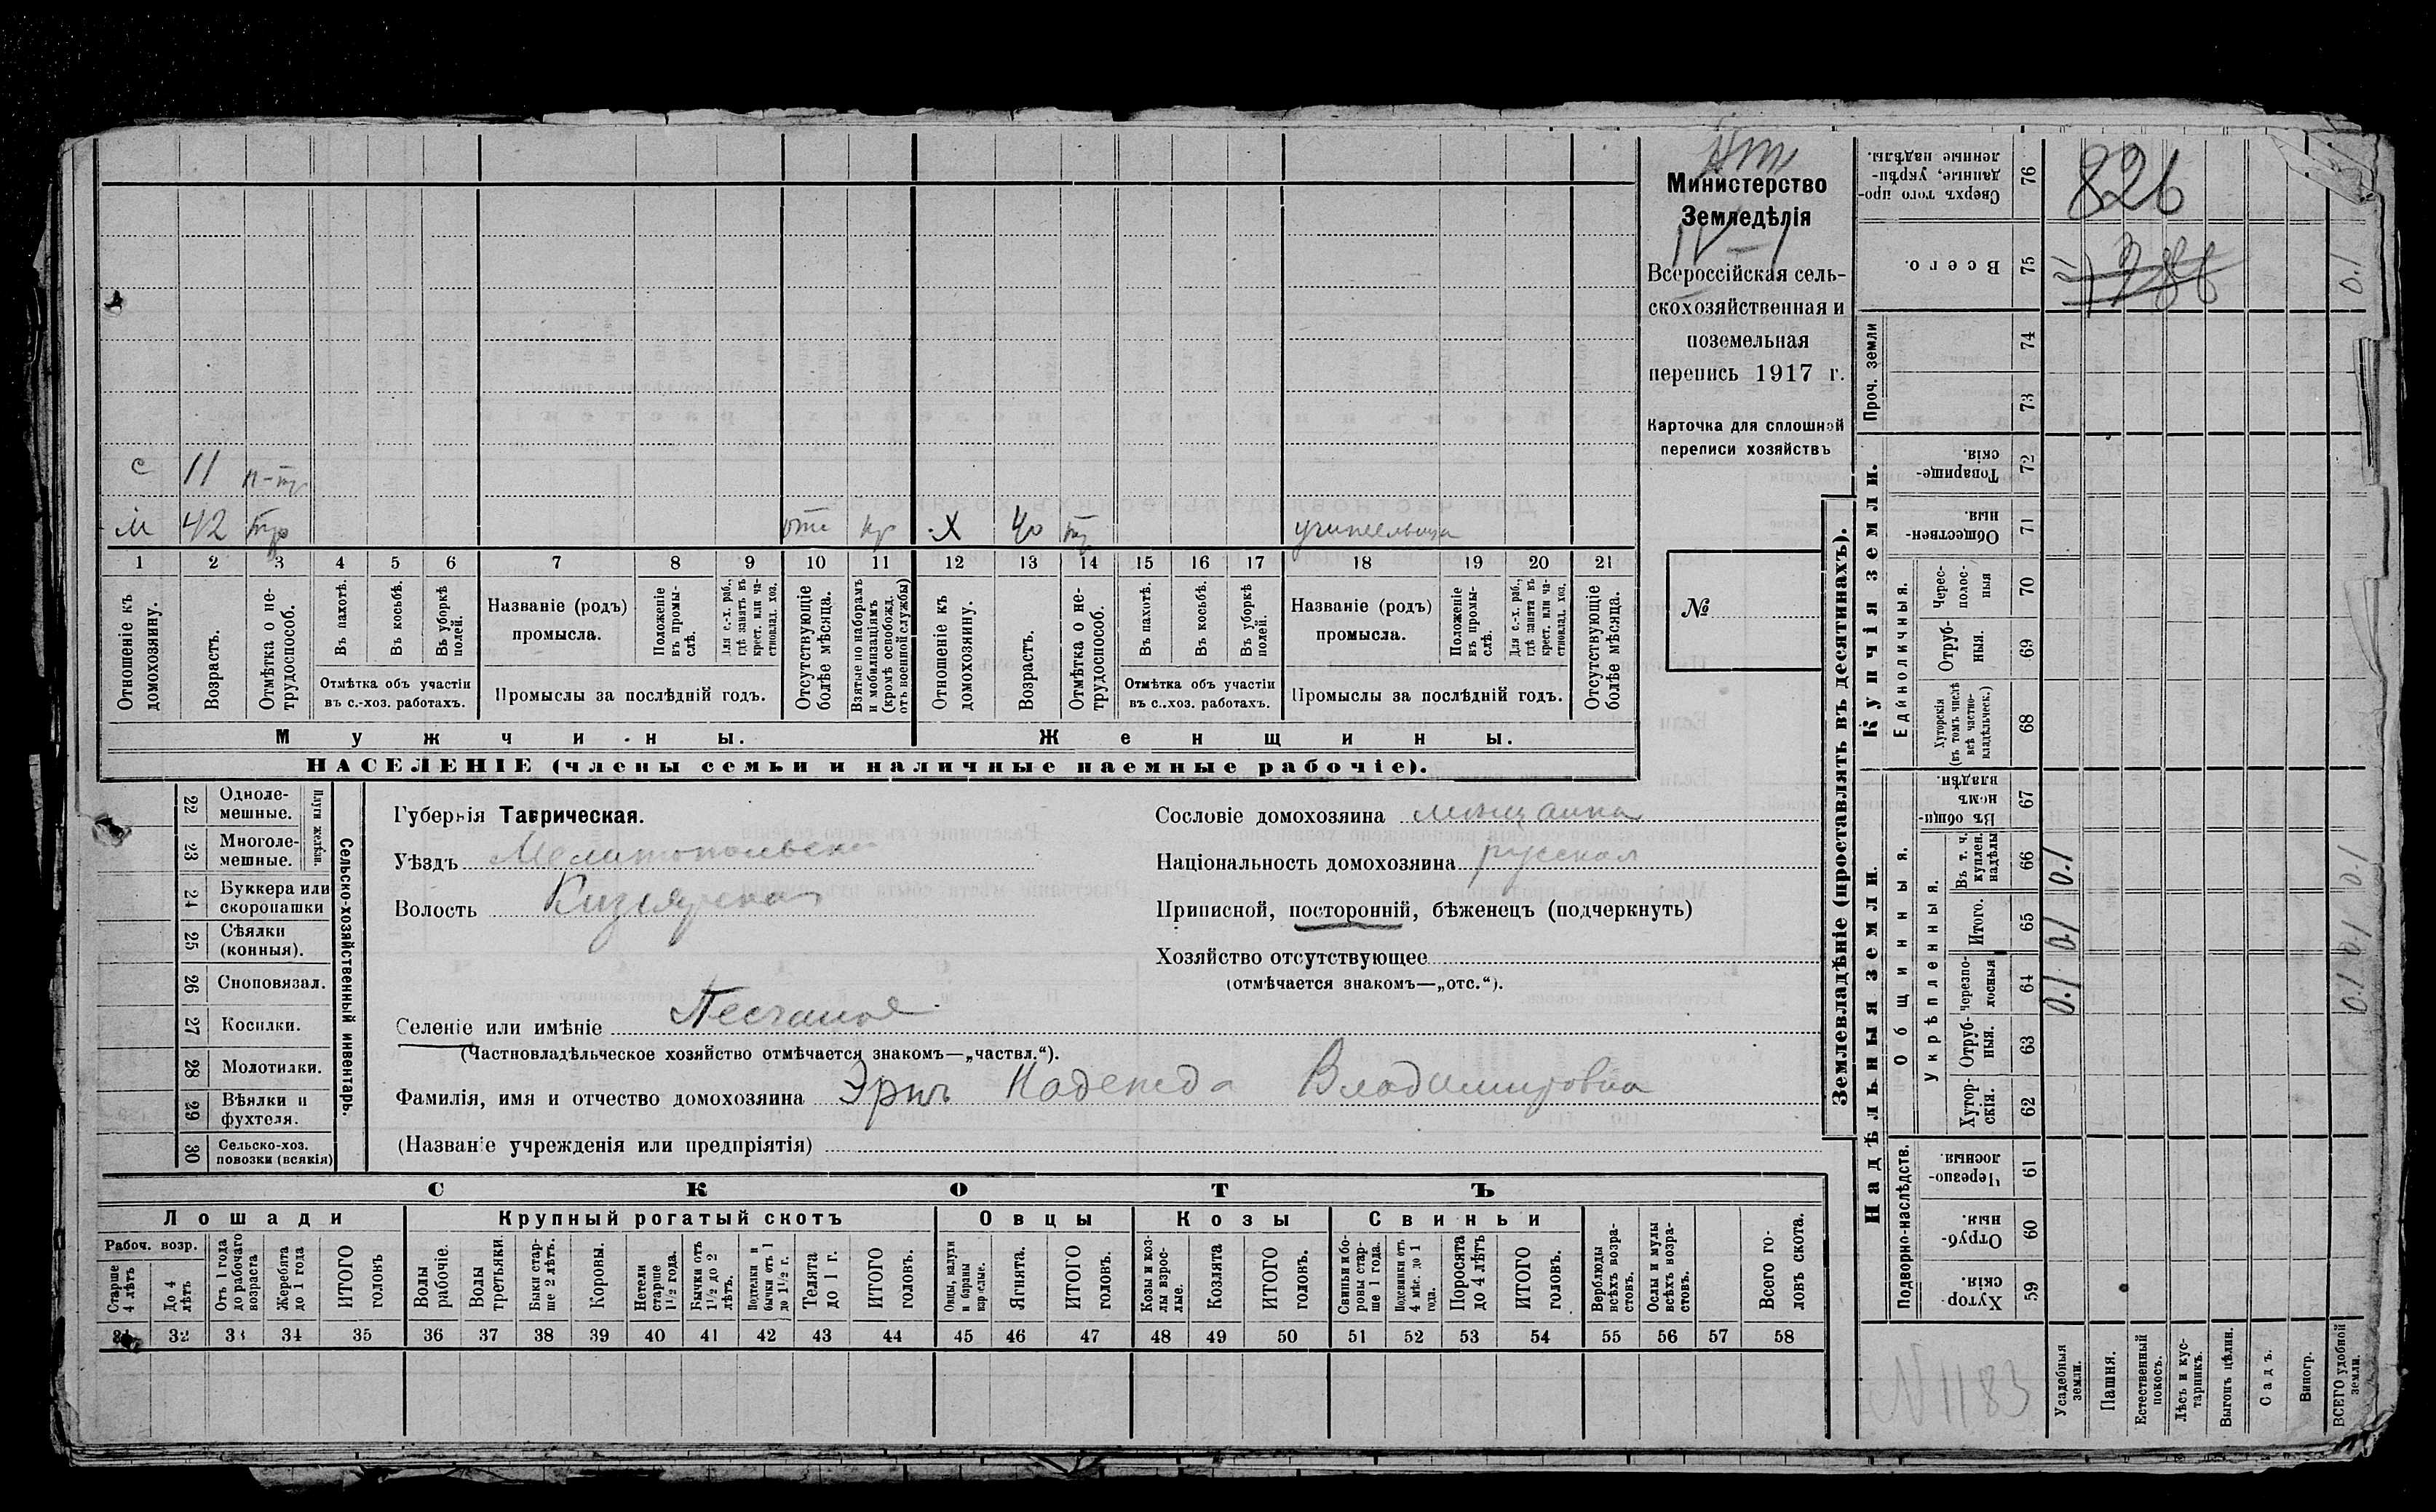 Министерство
Земледѣлія
IV – 1
Всероссійская сель-
скохозяйственная и
поземельная
перепись 1917 г.
Карточка для сплошной
переписи хозяйствъ
№
с 11 н-тр
м 42 тр отс кр х 40 тр учительница
1 2 3 4 5 6 7 8 9 10 11 12 13 14 15 16 17 18 19 20 21
Отношеніе къ домохозяину.
Возрастъ.
Отмѣтка о не-трудоспособ.
Въ пахотѣ.
Въ косьбѣ.
Въ уборкѣ полей.
Отмѣтка объ участіи въ с.-хоз. работахъ.
Названіе (родъ) промысла.
Положеніе въ промы-слѣ.
Для с.-х. раб., гдѣ занятъ въ крест. или ча-стновлад. хоз.
Промыслы за послѣдній годъ.
Отсутствующіе болѣе мѣсяца.
Взятые по наборамъ и мобилизаціямъ (кромѣ освобожд. отъ военной службы)
Отношеніе къ домохозяину.
Возрастъ.
Отмѣтка о не-трудоспособ.
Въ пахотѣ.
Въ косьбѣ.
Въ уборкѣ полей.
Отмѣтка объ участіи въ с.-хоз. работахъ.
Названіе (родъ) промысла.
Положеніе въ промы-слѣ.
Для с.-х. раб., гдѣ занята въ крест. или ча-стновлад. хоз.
Промыслы за послѣдній годъ.
Отсутствующіе болѣе мѣсяца.
Мужчины. Женщины.
НАСЕЛЕНІЕ (члены семьи и наличные наемные рабочіе).
22 Одноле-мешные.
23 Многоле-мешные.
Плуги желѣзн.
24 Буккера или скоропашки
25 Сѣялки (конныя).
26 Сноповязал.
27 Косилки.
28 Молотилки.
29 Вѣялки и фухтеля.
30 Сельско-хоз. повозки (всякія)
Сельско-хозяйственный инвентарь.
Губернія Таврическая.
Уѣздъ Мелитопольскій
Волость Кизіярская
Селеніе или имѣніе Песчаное
(Частновладѣльческое хозяйство отмѣчается знакомъ—„частвл.“).
Фамилія, имя и отчество домохозяина Эрнъ Надежда Владимировна
(Названіе учрежденія или предпріятія)
Сословіе домохозяина мѣщанка
Національность домохозяина русская
Приписной, посторонній, бѣженецъ (подчеркнуть)
Хозяйство отсутствующее
(отмѣчается знакомъ—„отс.“).
СКОТЪ
Лошади Крупный рогатый скотъ Овцы Козы Свиньи
Рабоч. возр.
Старше 4 лѣтъ
До 4 лѣтъ
Отъ 1 года до рабочаго возраста
Жеребята до 1 года
ИТОГО головъ
Волы рабочіе.
Волы третьяки.
Быки стар-ше 2 лѣтъ.
Коровы.
Нетели старше 1½ года.
Бычки отъ 1½ до 2 лѣтъ.
Подтелки и бычки отъ 1 до 1½ г.
Телята до 1 г.
ИТОГО головъ.
Овцы, валухи и бараны взрослые.
Ягнята.
ИТОГО головъ.
Козы и коз-лы взрос-лые.
Козлята
ИТОГО головъ.
Свиньи и бо-ровы стар-ше 1 года.
Подсвинки отъ 4 мѣс. до 1 года.
Поросята до 4 лѣтъ
ИТОГО головъ.
Верблюды всѣхъ возра-стовъ.
Ослы и мулы всѣхъ возра-стовъ.
Всего го-ловъ скота.
31 32 33 34 35 36 37 38 39 40 41 42 43 44 45 46 47 48 49 50 51 52 53 54 55 56 57 58
Землевладѣніе (проставлять въ десятинахъ).
Купчія земли.
Надѣльныя земли.
Проч. земли
Единоличныя.
Общинныя.
Укрѣпленныя.
Подворно-наслѣдств.
76 Сверхъ того про-данные, укрѣп-ленные надѣлы.
826
75 Всего.
0.1 386 0.1
74
73
72 Товарище-скія.
71 Обществен-ныя.
70 Черес-полос-ныя
69 Отруб-ныя.
68 Хуторскія (въ томъ числѣ всѣ частно-владѣльческ.)
67 Въ общи-номъ владѣн.
66 Въ т. ч. куплен. надѣлы 0.1 0.1
65 Итого. 0.1 0.1
64 Черезпо-лосныя 0.1 0.1
63 Отруб-ныя.
62 Хутор-скія.
61 Черезпо-лосныя.
60 Отруб-ныя.
59 Хутор-скія.
N 1183
Усадебныя земли.
Пашня.
Естественный покосъ.
Лѣсъ и кус-тарникъ.
Выгонъ цѣлин.
Садъ.
Виногр.
ВСЕГО удобной земли.